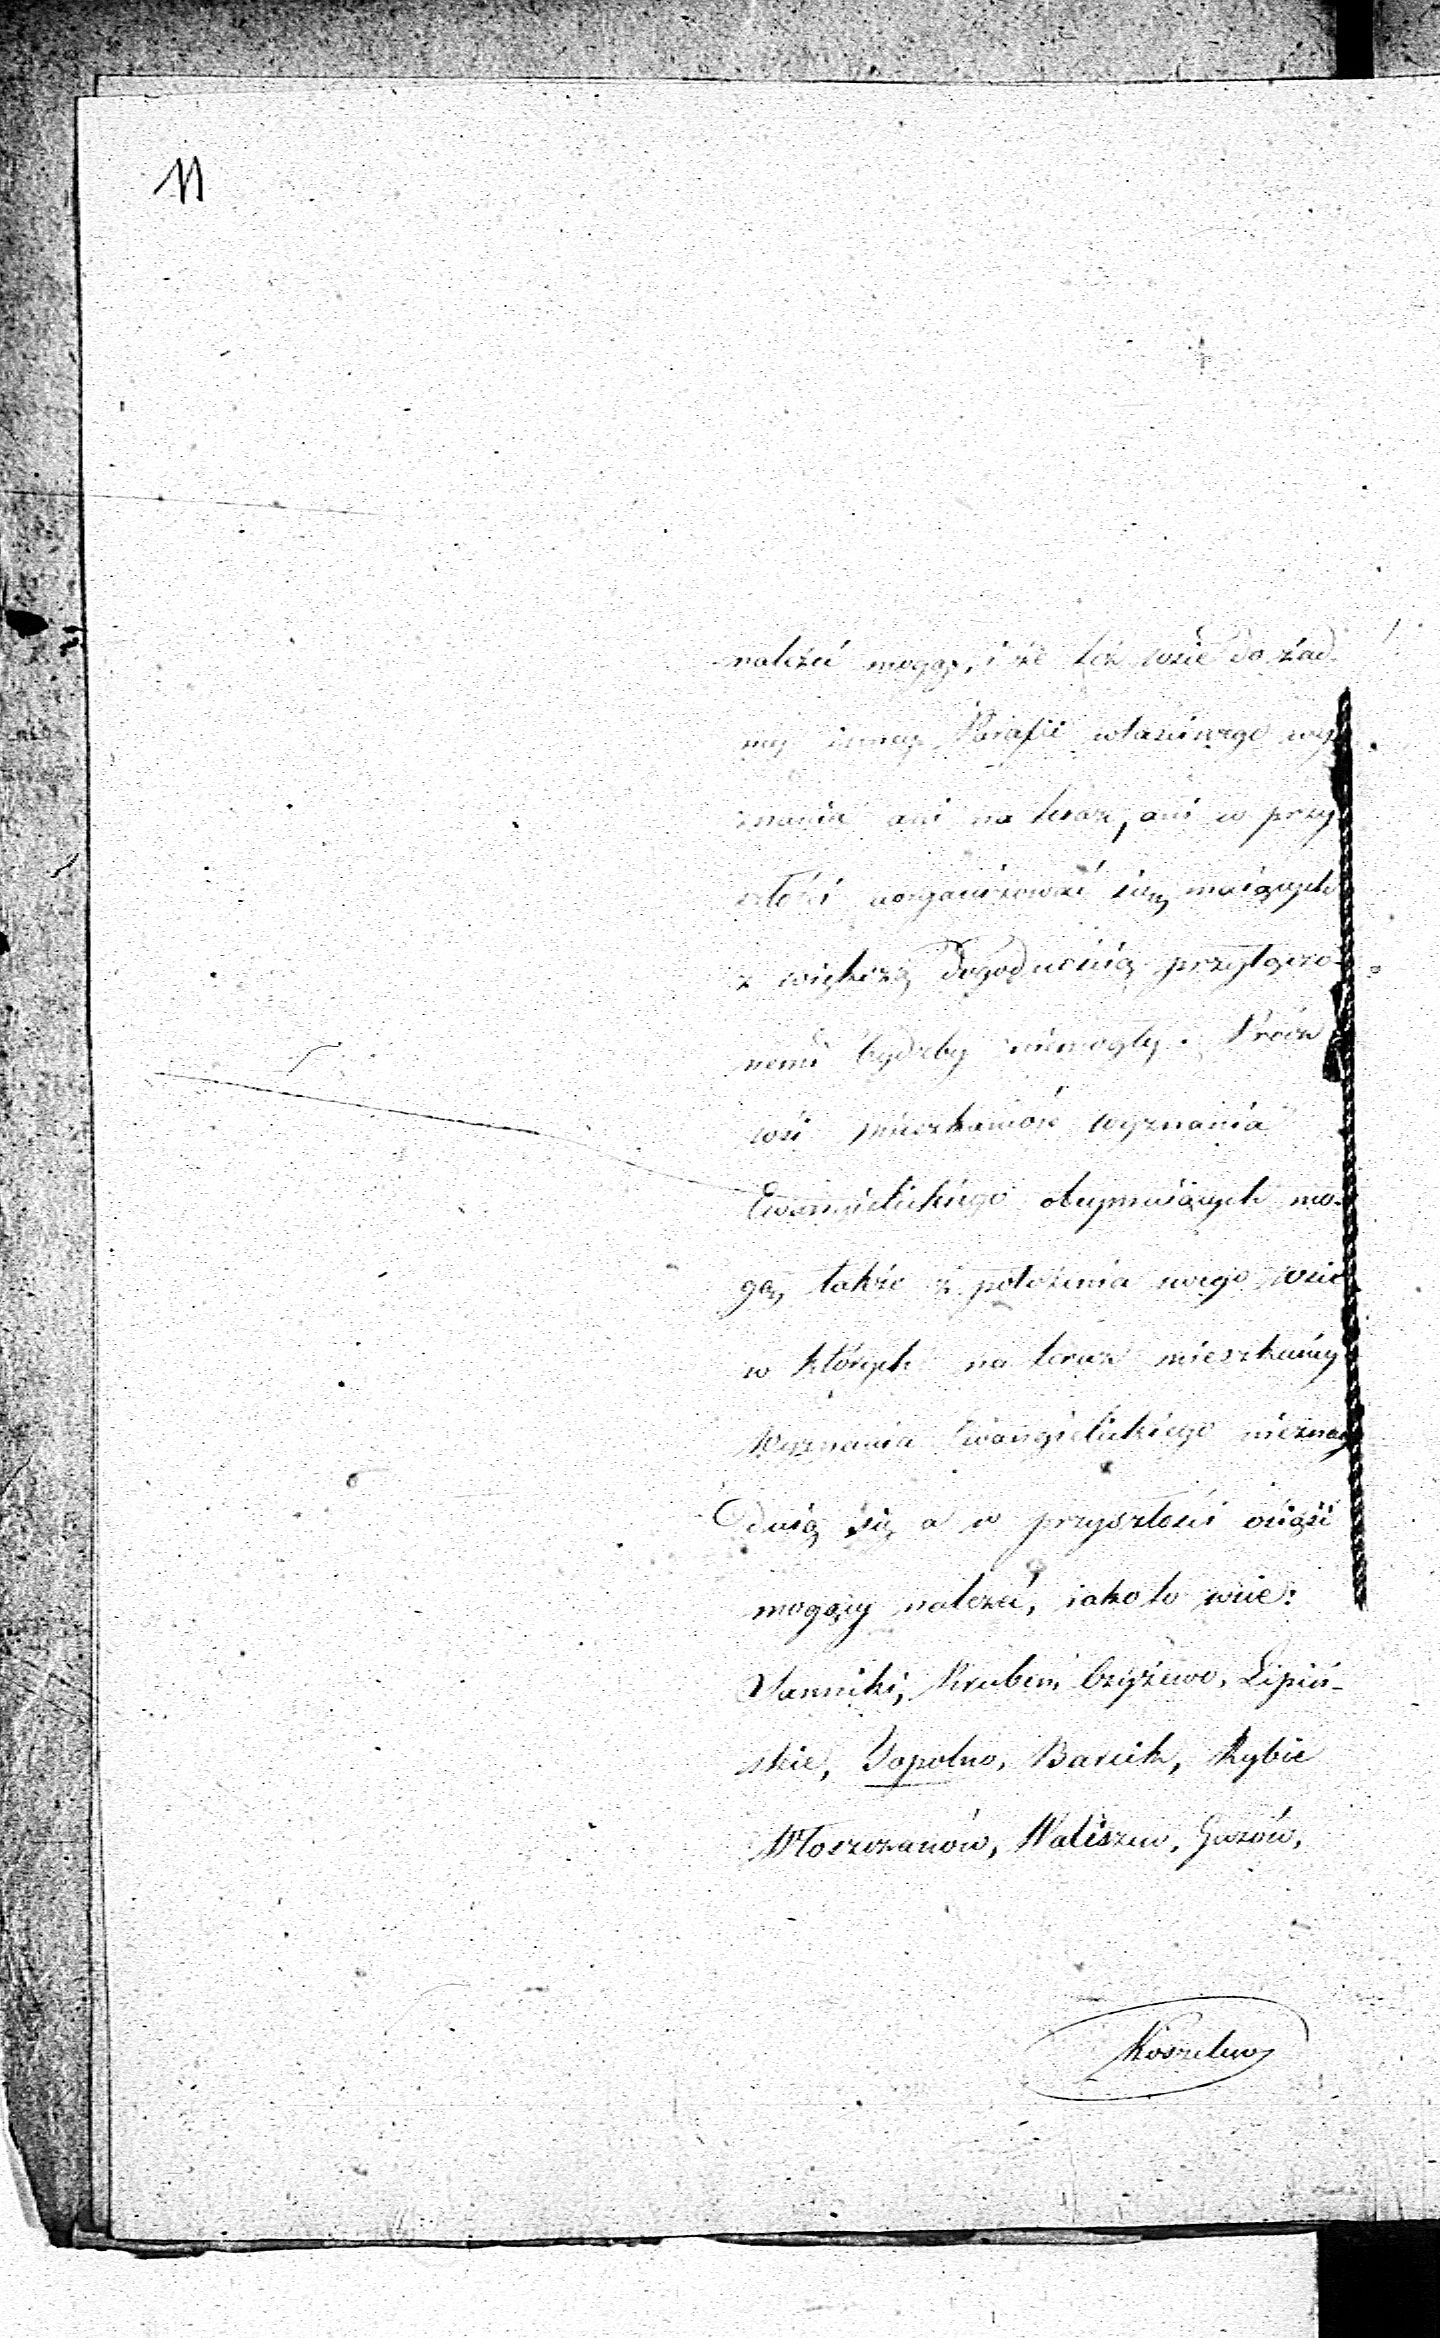 11
należeć mogą, i że też wsie do żad-
nej innej Parafii właściwego wy-
znania ani na teraz, ani w przy-
szłości uorganizować się maiących
z większą dogodnością przyłączo-
nemi bydźby niemogły. Prócz
wsi mieszkańców wyznania
Ewanielickiego obeymuiących mo-
gą także z położenia swego wsie
w których na teraz mieszkańcy
Wyznania Ewangielickiego nieznay-
duią się a w przyszłości osiąść
mogący należeć, iako to wsie:
Sanniki, Krubin, Czyżewo, Lipiń-
skie, Sapolno, Barcik, Rybie
Włoszczanów, Waliszew, Gozów,
Koszelew